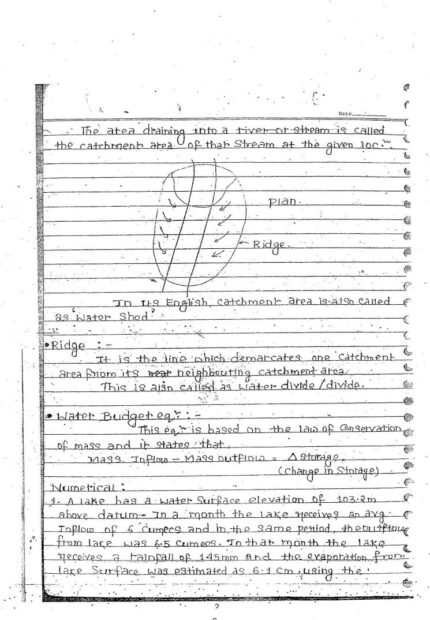 Date
The area draining into a river or stream is called
the catchment area of that Stream at the given loc.n
plan.
Ridge.
In U.S English, catchment area is also called
as "Water Shed"
• Ridge :-
It is the line which demarcates one Catchment
area from its neighbouring catchment area.
This is also called as water divide / divide.
• Water Budget eqn :-
This eqn is based on the law of Conservation
of mass and it states that,
Mass Inflow - Mass outflow = Δ storage.
(Change in Storage)
Numerical :
1. A lake has a water surface elevation of 103.2m
above datum. In a month the lake receives an avg.
Inflow of 6 Cumecs and in the same period, the outflow
from lake was 6.5 Cumecs. In that month the lake
receives a rainfall of 145mm and the evaporation from
lake Surface was estimated as 6.1 Cm, using the